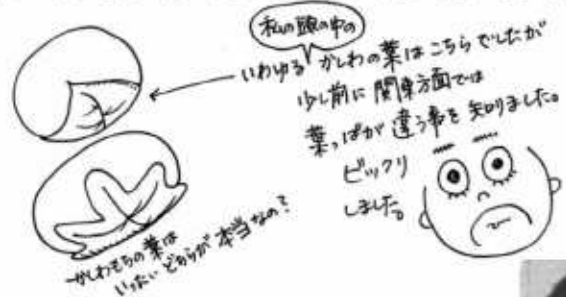 私の頭の中の
いわゆる かしわの葉はこちらでしたが
少し前に関東方面では
葉っぱが違う事を知りました。
ビックリ
しました。
かしわもちの葉は
いったいどちらが本当なの?